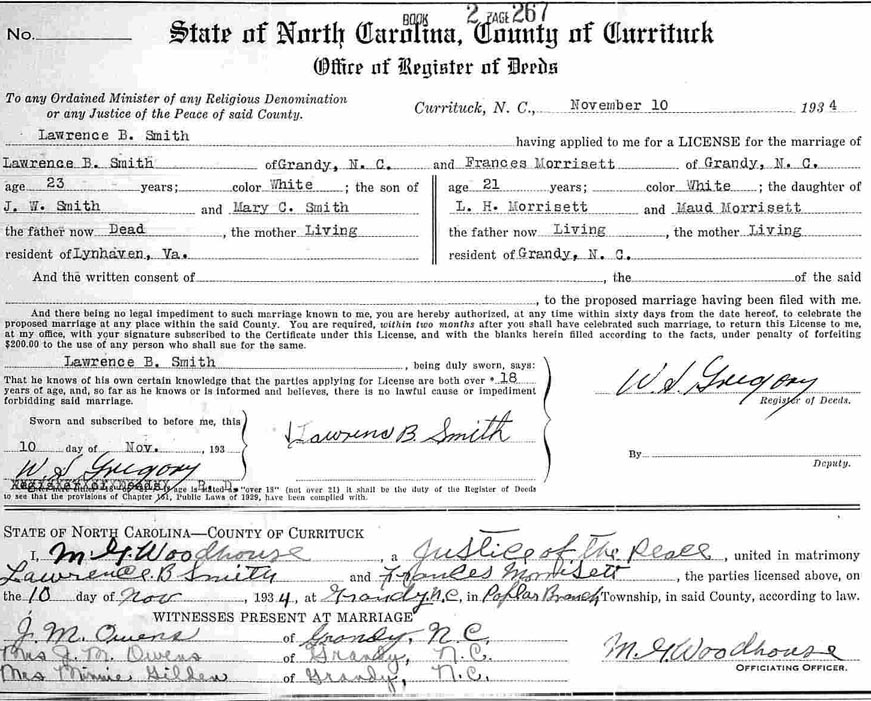 BOOK 2 PAGE 267
No.
State of North Carolina, County of Currituck
Office of Register of Deeds
To any Ordained Minister of any Religious Denomination
or any Justice of the Peace of said County.
Currituck, N. C., November 10 1934
Lawrence B. Smith having applied to me for a LICENSE for the marriage of
Lawrence B. Smith of Grandy, N. C. and Frances Morrisett of Grandy, N. C.
age 23 years; color White ; the son of age 21 years; color White ; the daughter of
J. W. Smith and Mary C. Smith L. H. Morrisett and Maud Morrisett
the father now Dead , the mother Living the father now Living , the mother Living
resident of Lynhaven, Va. resident of Grandy, N. C.
And the written consent of , the of the said
, to the proposed marriage having been filed with me.
And there being no legal impediment to such marriage known to me, you are hereby authorized, at any time within sixty days from the date hereof, to celebrate the
proposed marriage at any place within the said County. You are required, within two months after you shall have celebrated such marriage, to return this License to me,
at my office, with your signature subscribed to the Certificate under this License, and with the blanks herein filled according to the facts, under penalty of forfeiting
$200.00 to the use of any person who shall sue for the same.
Lawrence B. Smith , being duly sworn, says:
That he knows of his own certain knowledge that the parties applying for License are both over * 18
years of age, and, so far as he knows or is informed and believes, there is no lawful cause or impediment
forbidding said marriage.
W. S. Gregory
Register of Deeds.
Sworn and subscribed to before me, this
10 day of Nov. , 193
Lawrenc B. Smith
W. S. Gregory
By
Deputy.
Register of Deeds R. D.
age is stated as "over 18" (not over 21) it shall be the duty of the Register of Deeds
to see that the provisions of Chapter Public Laws of 1929, have been complied with.
STATE OF NORTH CAROLINA—COUNTY OF CURRITUCK
I, M. G. Woodhouse , a Justice of the Peace , united in matrimony
Lawrence B Smith and Frances Morrisett , the parties licensed above, on
the 10 day of Nov , 1934, at Grandy N.C, in Poplar Branch Township, in said County, according to law.
WITNESSES PRESENT AT MARRIAGE
J. M. Owens of Grandy, N.C.
Mrs J. M. Owens of Grandy, N.C.
Mrs Minnie of Grandy, N.C.
M. G. Woodhouse
OFFICIATING OFFICER.